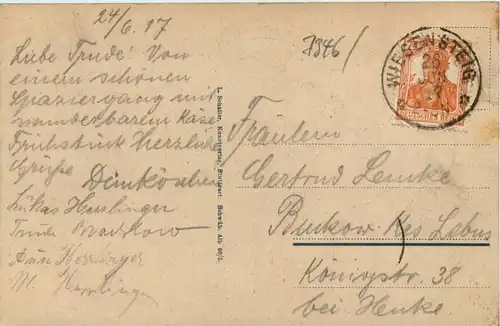 24/6.17
Liebe Trude! Von
einem schönen
Spaziergang mit
wunderbarem Käse
Frühstück herzliche
Grüße
Lukas Herrlinger
Trude
Herrlinger
M. Herrlinger
L. Schaller, Kunstverlag, Stuttgart. Schwäb. Alb
3346/
WIESENSTEIG
DEUTSCHES REICH
Fräulein
Gertrud Lemke
Buckow Krs Lebus
Königstr. 38
bei Henke